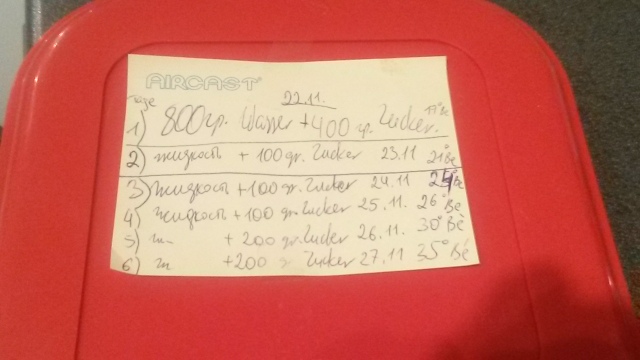 AIRCAST
22.11.
Tage
1) 800 gr. Wasser + 400 gr. Zucker. 17°Bé
2) жидкость + 100 gr. Zucker 23.11 21°Bé
3) жидкость + 100 gr. Zucker 24.11 24°Bé
4) жидкость + 100 gr. Zucker 25.11. 26°Bé
5) + 200 gr. Zucker 26.11. 30°Bé
6) + 200 g Zucker 27.11 35°Bé